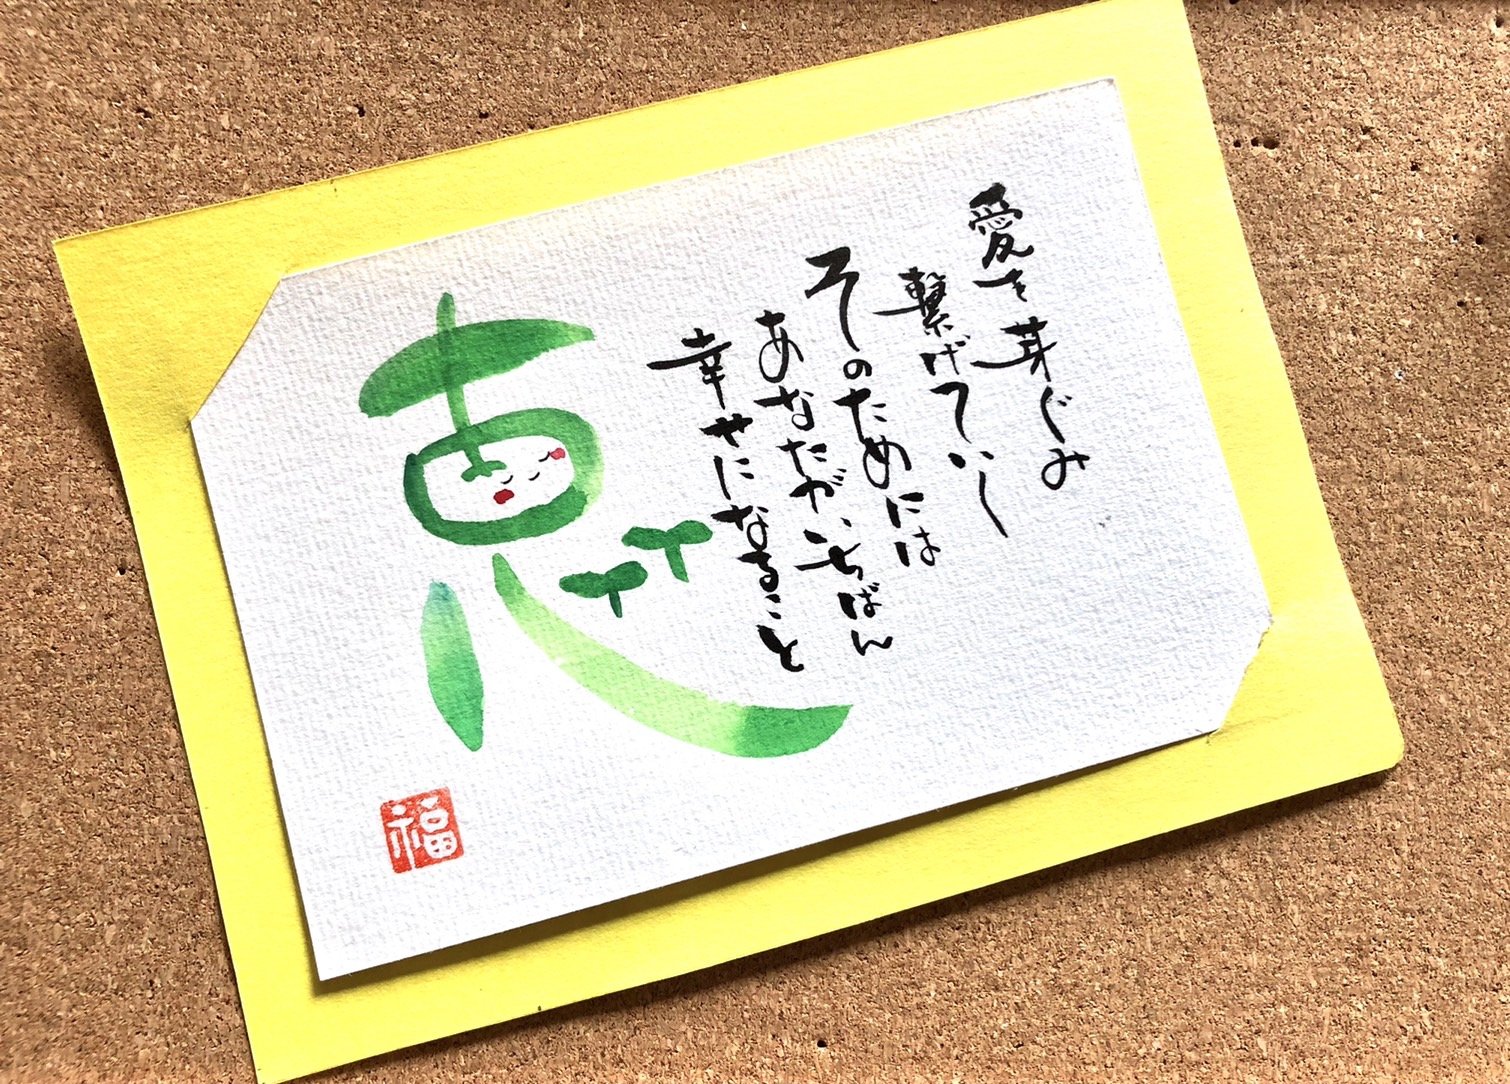 愛を芽ぐみ
繋げていく
そのためには
あなたがいちばん
幸せになること
恵
福